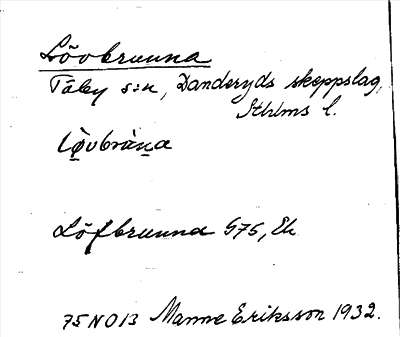 Lövbrunna
Täby s:n, Danderyds skeppslag,
Sthlms l.
Lø̀vbrùn̲a
Löfbrunna G75, Ek
75 NO 13 Manne Eriksson 1932.